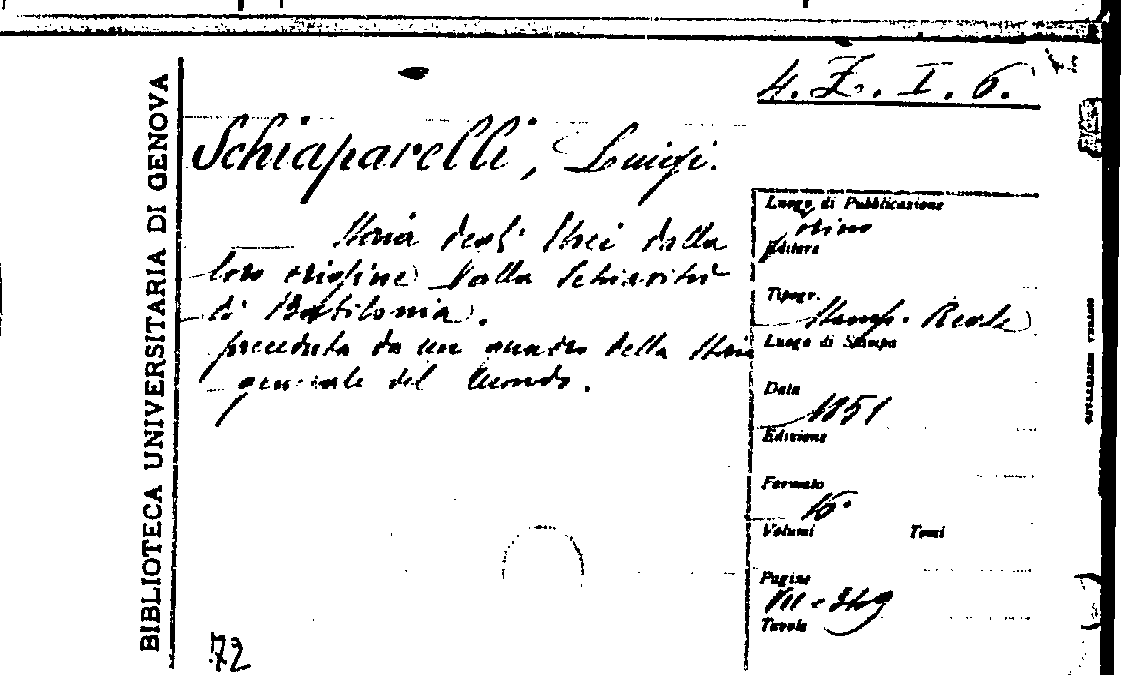 BIBLIOTECA UNIVERSITARIA DI GENOVA
4. Z. I. 6.
Schiaparelli, Luigi.
Storia degli Ebrei dalla
loro origine dalla schiavitù
di Babilonia.
preceduta da un quadro della Storia
generale del mondo.
Luogo di Pubblicazione
Torino
Editore
Tipogr.
Stamp. Reale
Luogo di Stampa
Data
1851
Edizione
Formato
16°
Volumi Tomi
Pagine
VII - 349
Tavole
72